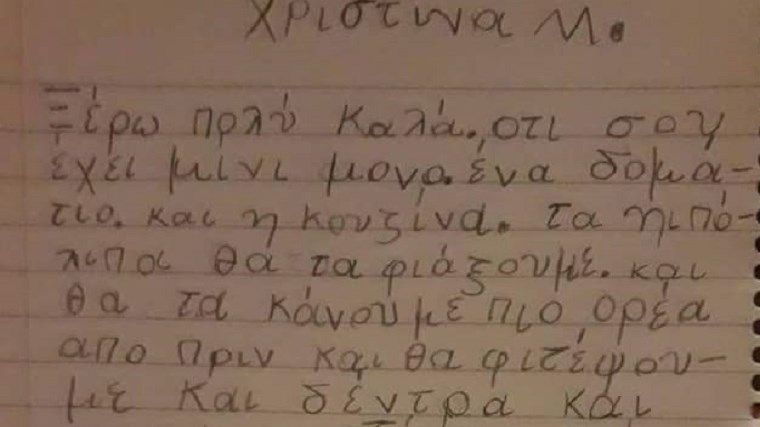 Χριστινα Μ.
Ξέρω πολύ καλά. οτι σου
έχει μινι μονο. ένα δομα-
τιο. και η κουζίνα. τα ηιπό-
λιπα θα τα φιάξουμε. και
θα τα κάνουμε πιο ορέα
απο πριν και θα φιτέψου-
με και δέντρα και